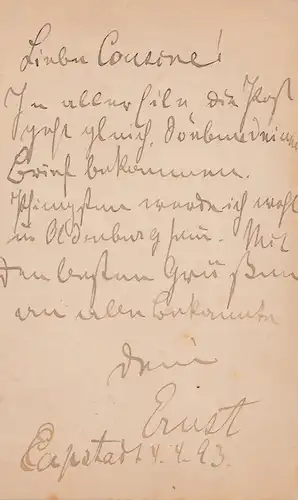 Liebe Cousine!
In aller Eile die Post
geht gleich. Soeben deinen
Brief bekommen.
Pfingsten werde ich wohl
in Oldenburg sein. Mit
den besten Grüßen
an alle Bekannte
dein
Ernst
Capstadt 4.4.93.